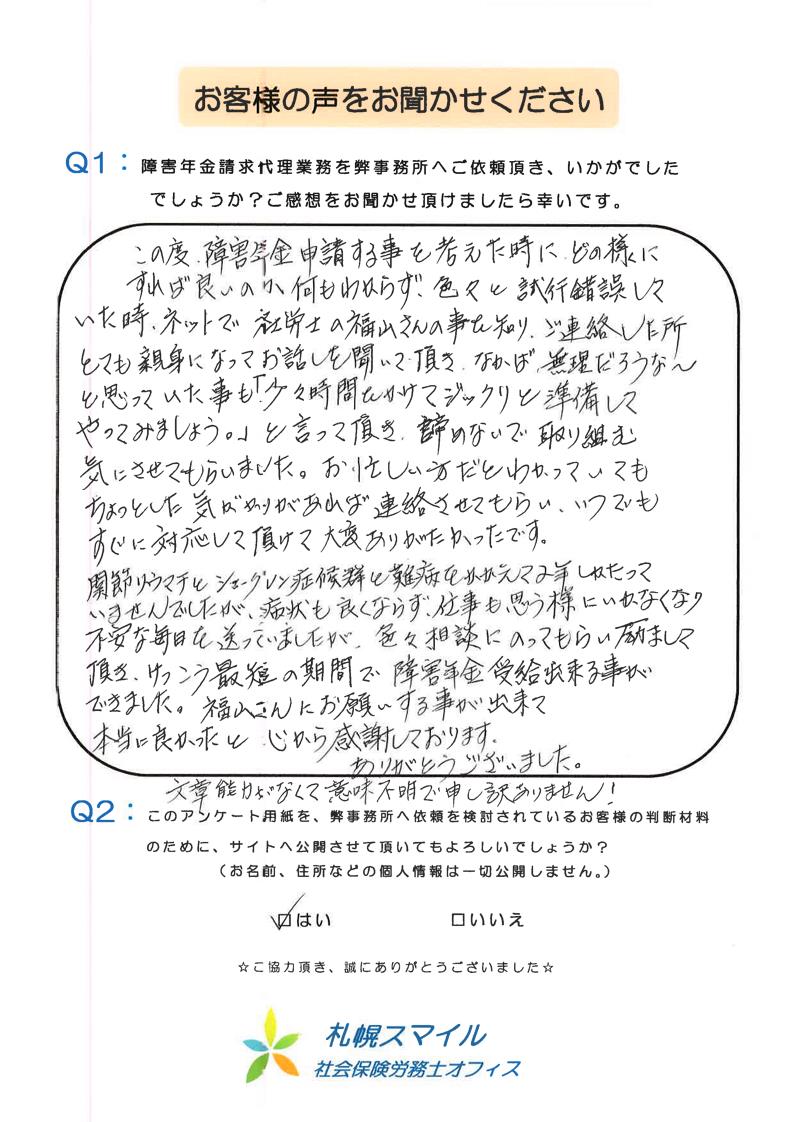 お客様の声をお聞かせください
Q1：障害年金請求代理業務を弊事務所へご依頼頂き、いかがでした
でしょうか？ご感想をお聞かせ頂けましたら幸いです。
この度、障害年金申請する事を考えた時に、どの様に
すれば良いのか、何もわからず、色々と試行錯誤して
いた時、ネットで社労士の福山さんの事を知り、ご連絡した所
とても親身になってお話しを聞いて頂き、なかば、無理だろうな〜
と思っていた事も「少々時間をかけてジックリと準備して
やってみましょう。」と言って頂き、諦めないで取り組む
気にさせてもらいました。お忙しい方だとわかっていても
ちょっとした気がかりがあれば連絡させてもらい、いつでも
すぐに対応して頂けて大変ありがたかったです。
関節リウマチとシェーグレン症候群と難病をかかえて2年しかたって
いませんでしたが、病状も良くならず、仕事も思う様にいかなくなり
不安な毎日を送っていましたが、色々相談にのってもらい励まして
頂き、けっこう最短の期間で障害年金受給出来る事が
できました。福山さんにお願いする事が出来て
本当に良かったと心から感謝しております。
ありがとうございました。
文章能力がなくて意味不明で申し訳ありません！
Q2：このアンケート用紙を、弊事務所へ依頼を検討されているお客様の判断材料
のために、サイトへ公開させて頂いてもよろしいでしょうか？
（お名前、住所などの個人情報は一切公開しません。）
☑はい　□いいえ
☆ご協力頂き、誠にありがとうございました☆
札幌スマイル
社会保険労務士オフィス